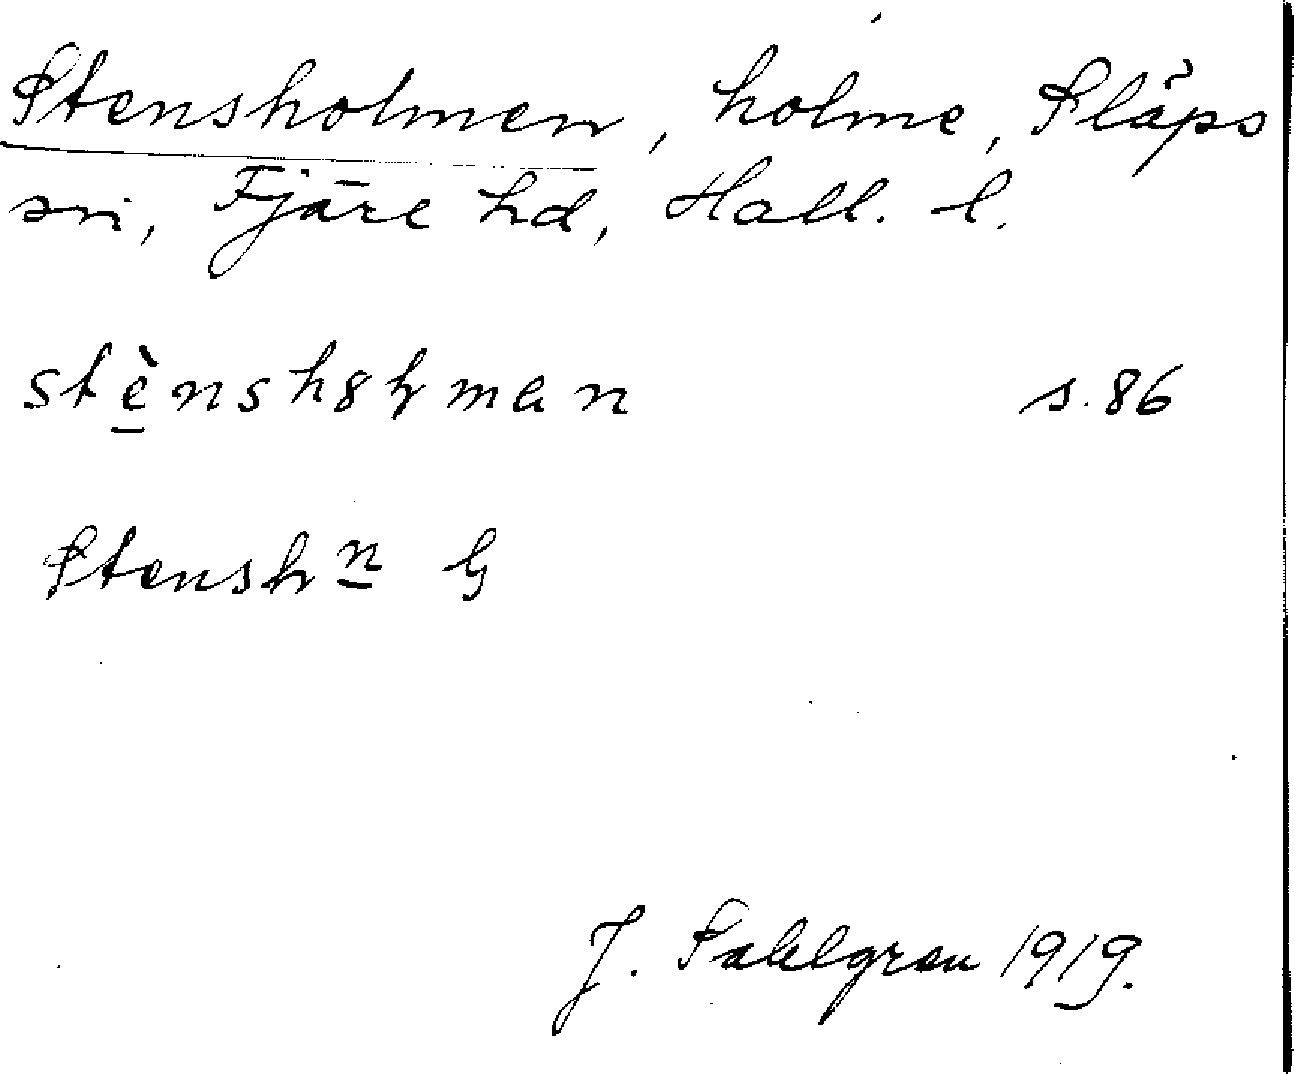 Stensholmen, holme, Släps
sn, Fjäre hd, Hall. l.
s. 86
Stensh<u>n</u> G
J. Sahlgren 1919.